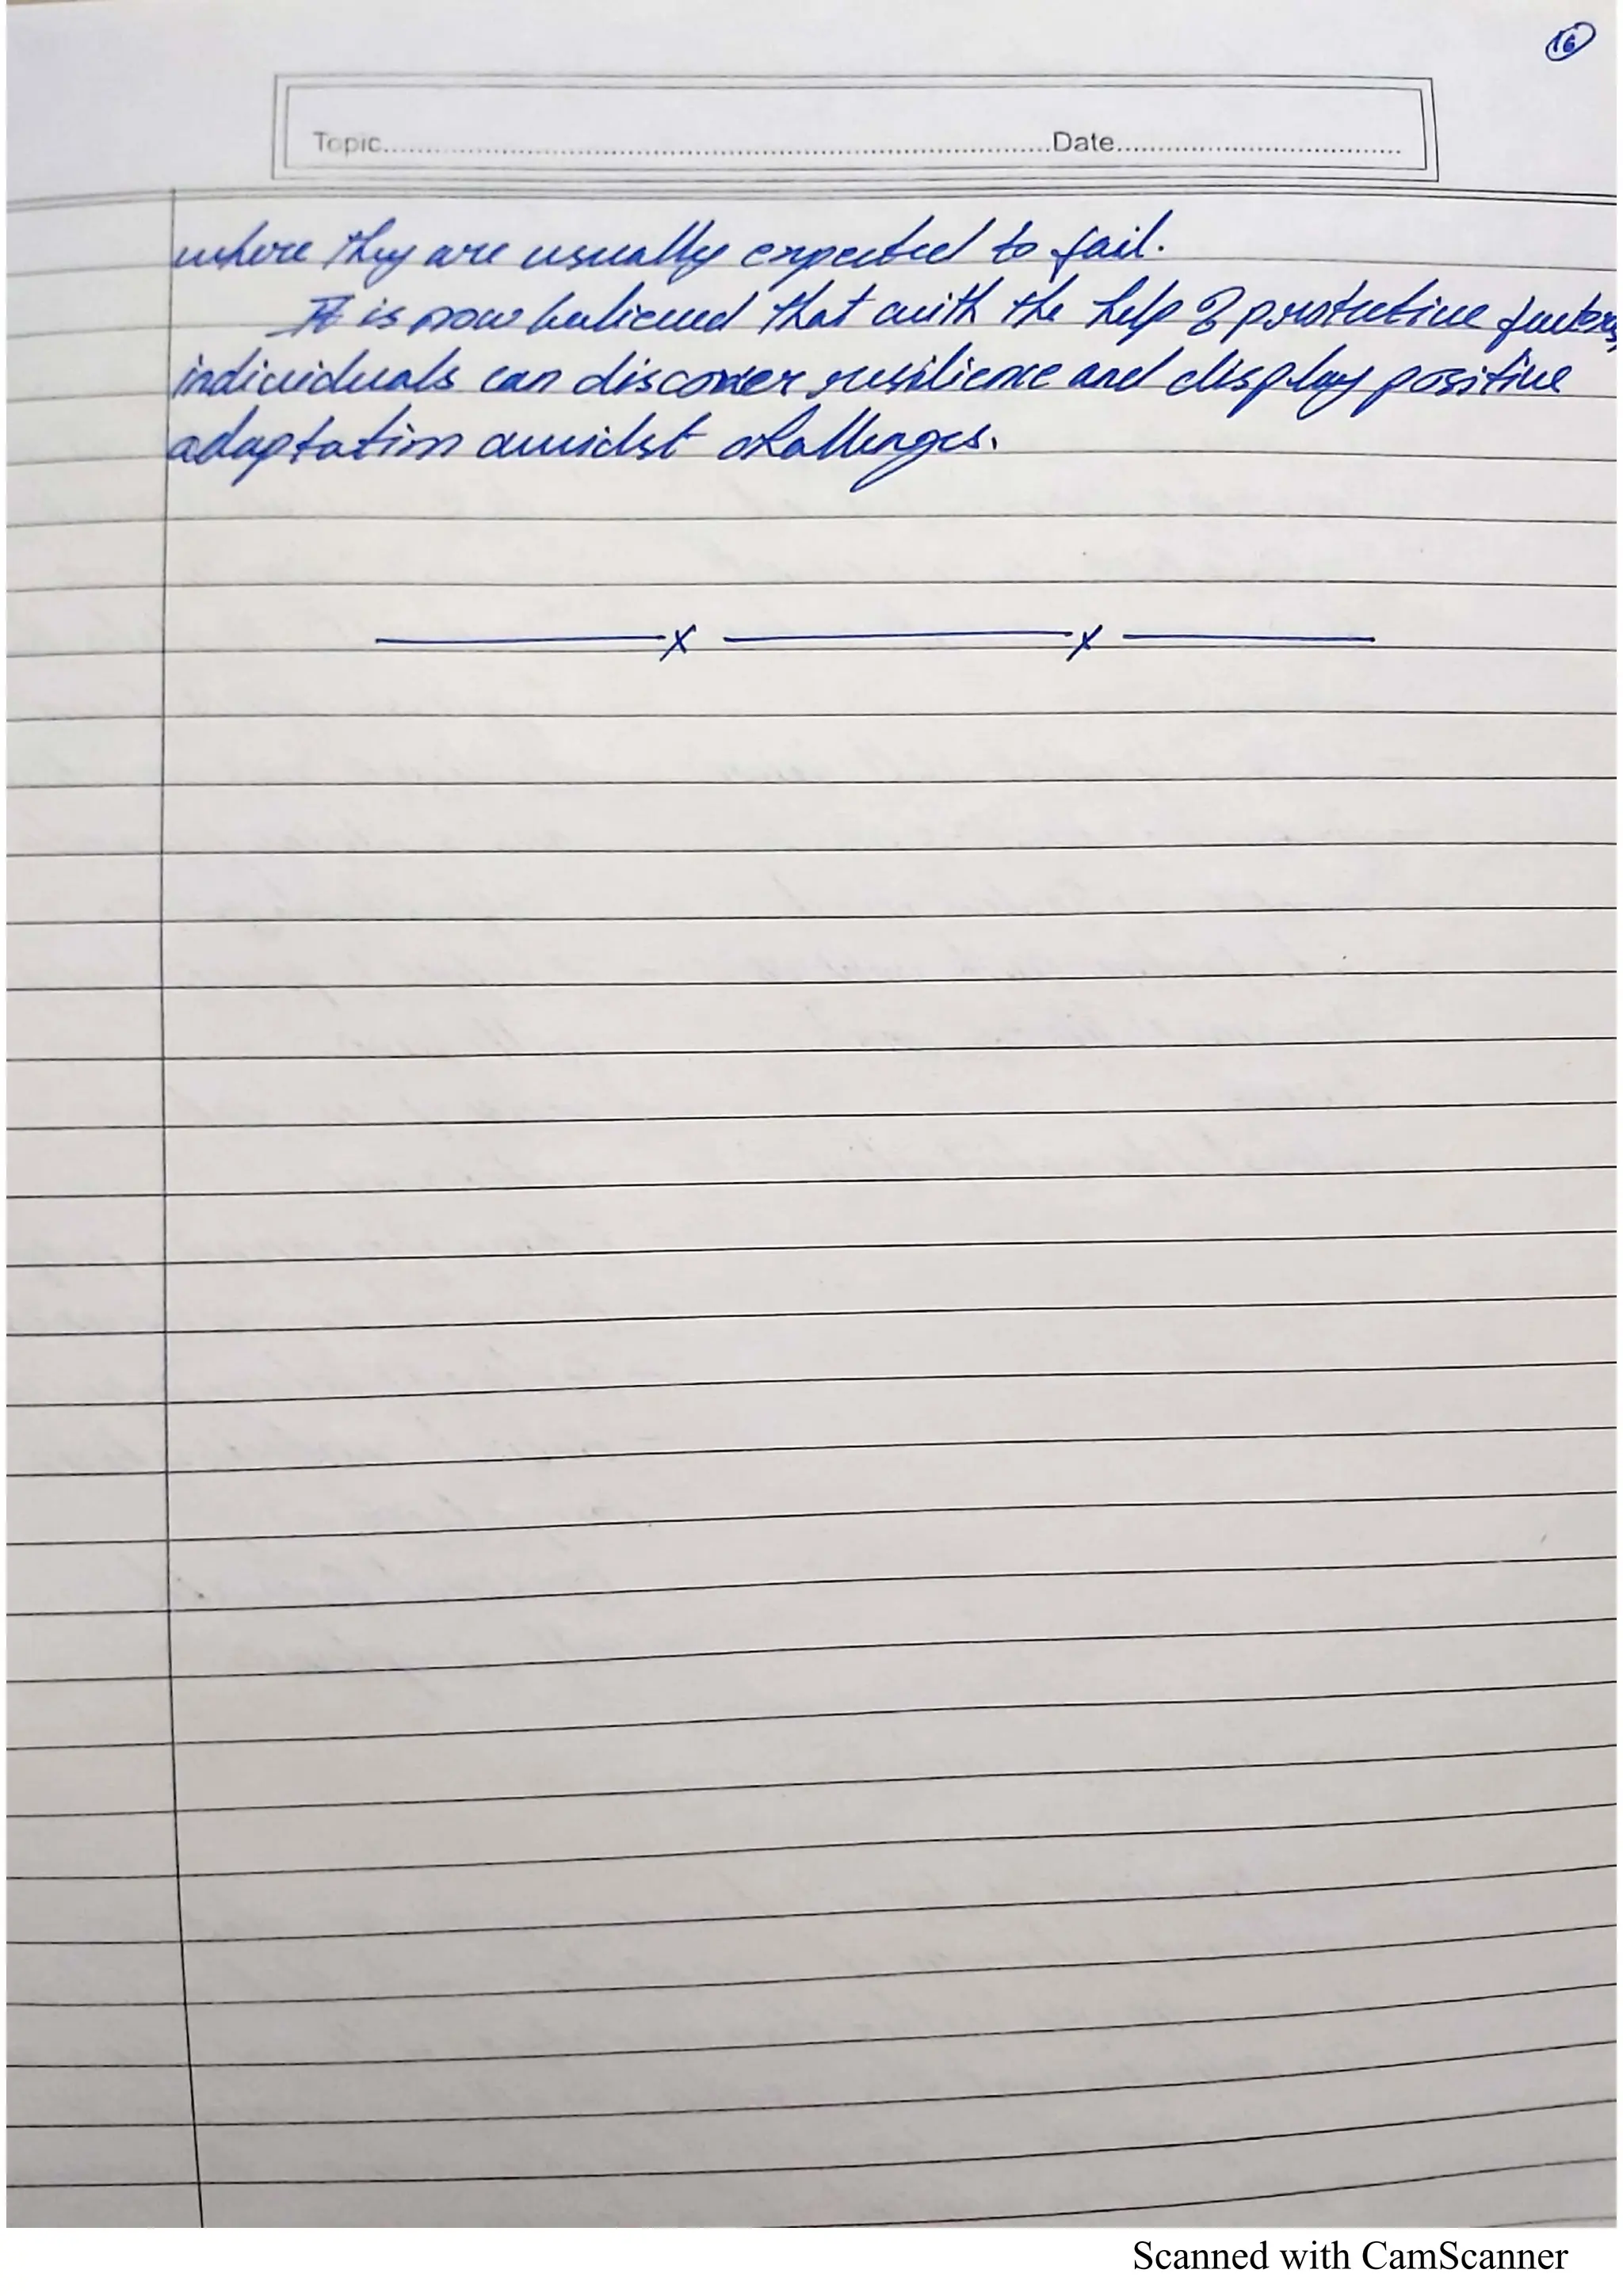 16
Topic..........Date..........
where they are usually expected to fail.
It is now believed that with the help of protective factors,
individuals can discover resilience and display positive
adaptation amidst challenges.
x x
Scanned with CamScanner